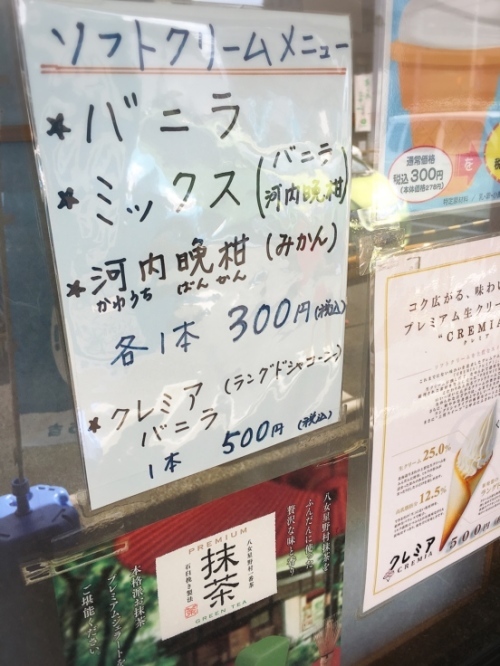 ソフトクリームメニュー
*バニラ
*ミックス(バニラ
河内晩柑)
*河内晩柑(みかん)
かわうち ばんかん
各1本 300円(税込)
*クレミア(ラングドシャコーン)
バニラ
1本 500円(税込)
通常価格
税込300円
(本体価格278円)
を
コク広がる、味わい
プレミアム生クリ
"CREMIA
クレミア
生クリーム25.0%
12.5%
クレミア
CREMIA
500円
PREMIUM
抹茶
GREEN TEA
八女星野村一番茶
石臼挽き製法
八女星野村抹茶を
ふんだんに使った
贅沢な味と香り
本格派お抹茶
プレミアムジェラートを
ご堪能ください